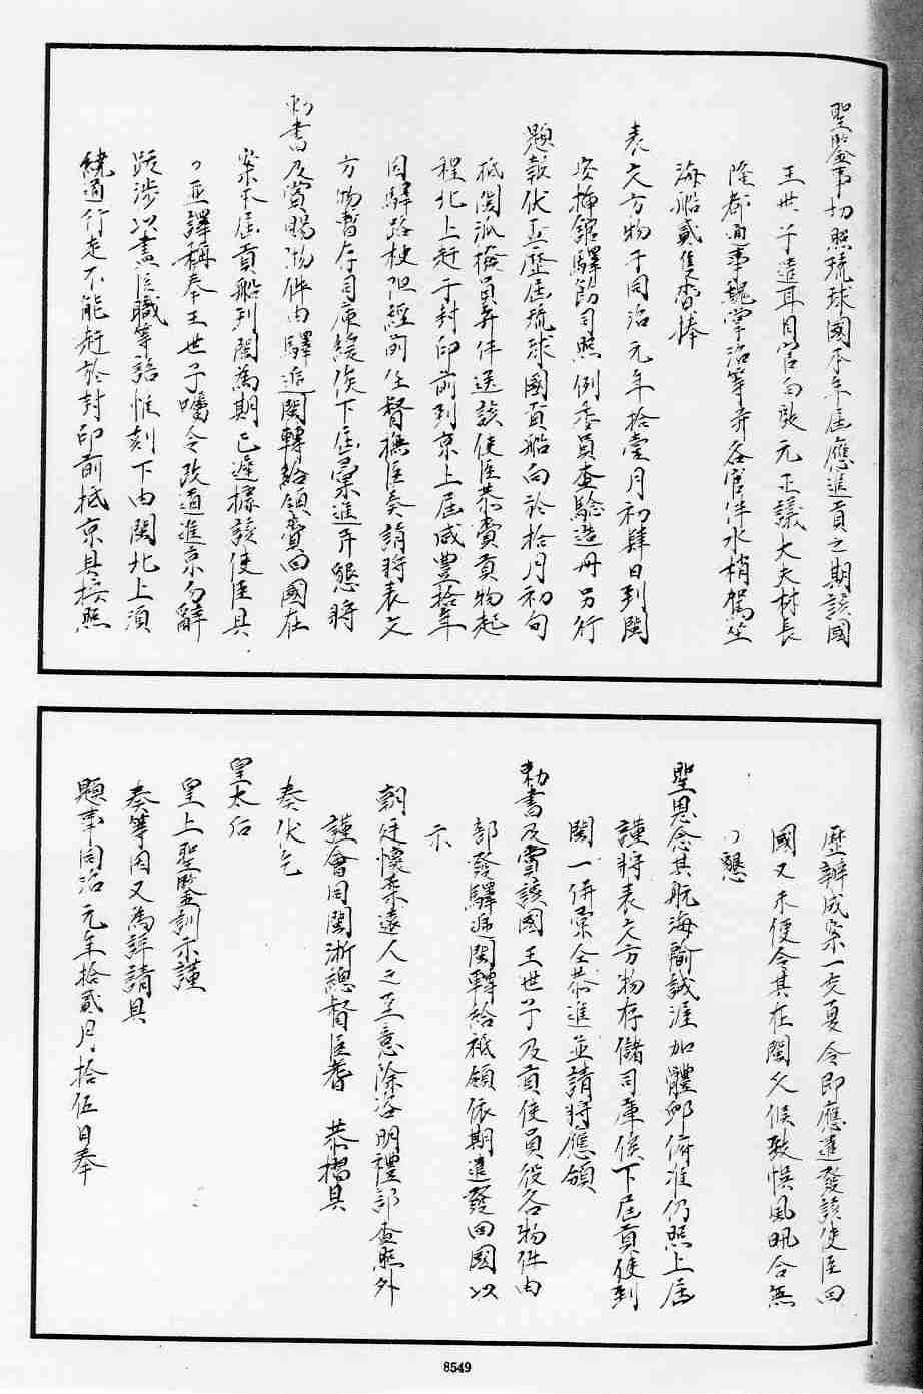 聖鑒事切照琉球國本年屆應進貢之期該國
王世子遣耳目官向致元正議大夫林長
隆都通事魏掌治等并各官伴水梢駕坐
海船貳隻齎捧
表文方物于同治元年拾壹月初肆日到閩
安插館驛飭司照例委員查驗造冊另行
題報伏查歷屆琉球國貢船向於拾月初旬
抵閩派撥員弁伴送該使臣恭齎貢物起
程北上趕于封印前到京上屆咸豐拾年
因驛路梗阻經前任督撫臣奏請將表文
方物暫存司庫緩俟下屆彙進并懇將
勅書及賞賜物件由驛遞閩轉給領齎回國在
案本屆貢船到閩為期已遲據該使臣具
亟譯稱奉王世子囑令改道進京勿辭
跋涉以盡臣職等語惟刻下由閩北上須
繞道行走不能趕於封印前抵京與按照
歷辦成案一交夏令即應遣發該使臣回
國又未便令其在閩久候致悞風汛合無
懇
聖恩念其航海輸誠渥加體卹俯准仍照上屆
謹將表文方物存儲司庫俟下屆貢使到
閩一併彙全恭進並請將應頒
勅書及賞該國王世子及貢使員役各物件由
部發驛遞閩轉給祗領依期遣發回國以
示
朝廷懷柔遠人之至意除咨明禮部查照外
謹會同閩浙總督臣耆 恭摺具
奏伏乞
皇太后
皇上聖鑒訓示謹
奏等因又為詳請具
題事同治元年拾貳月拾伍日奉
8549